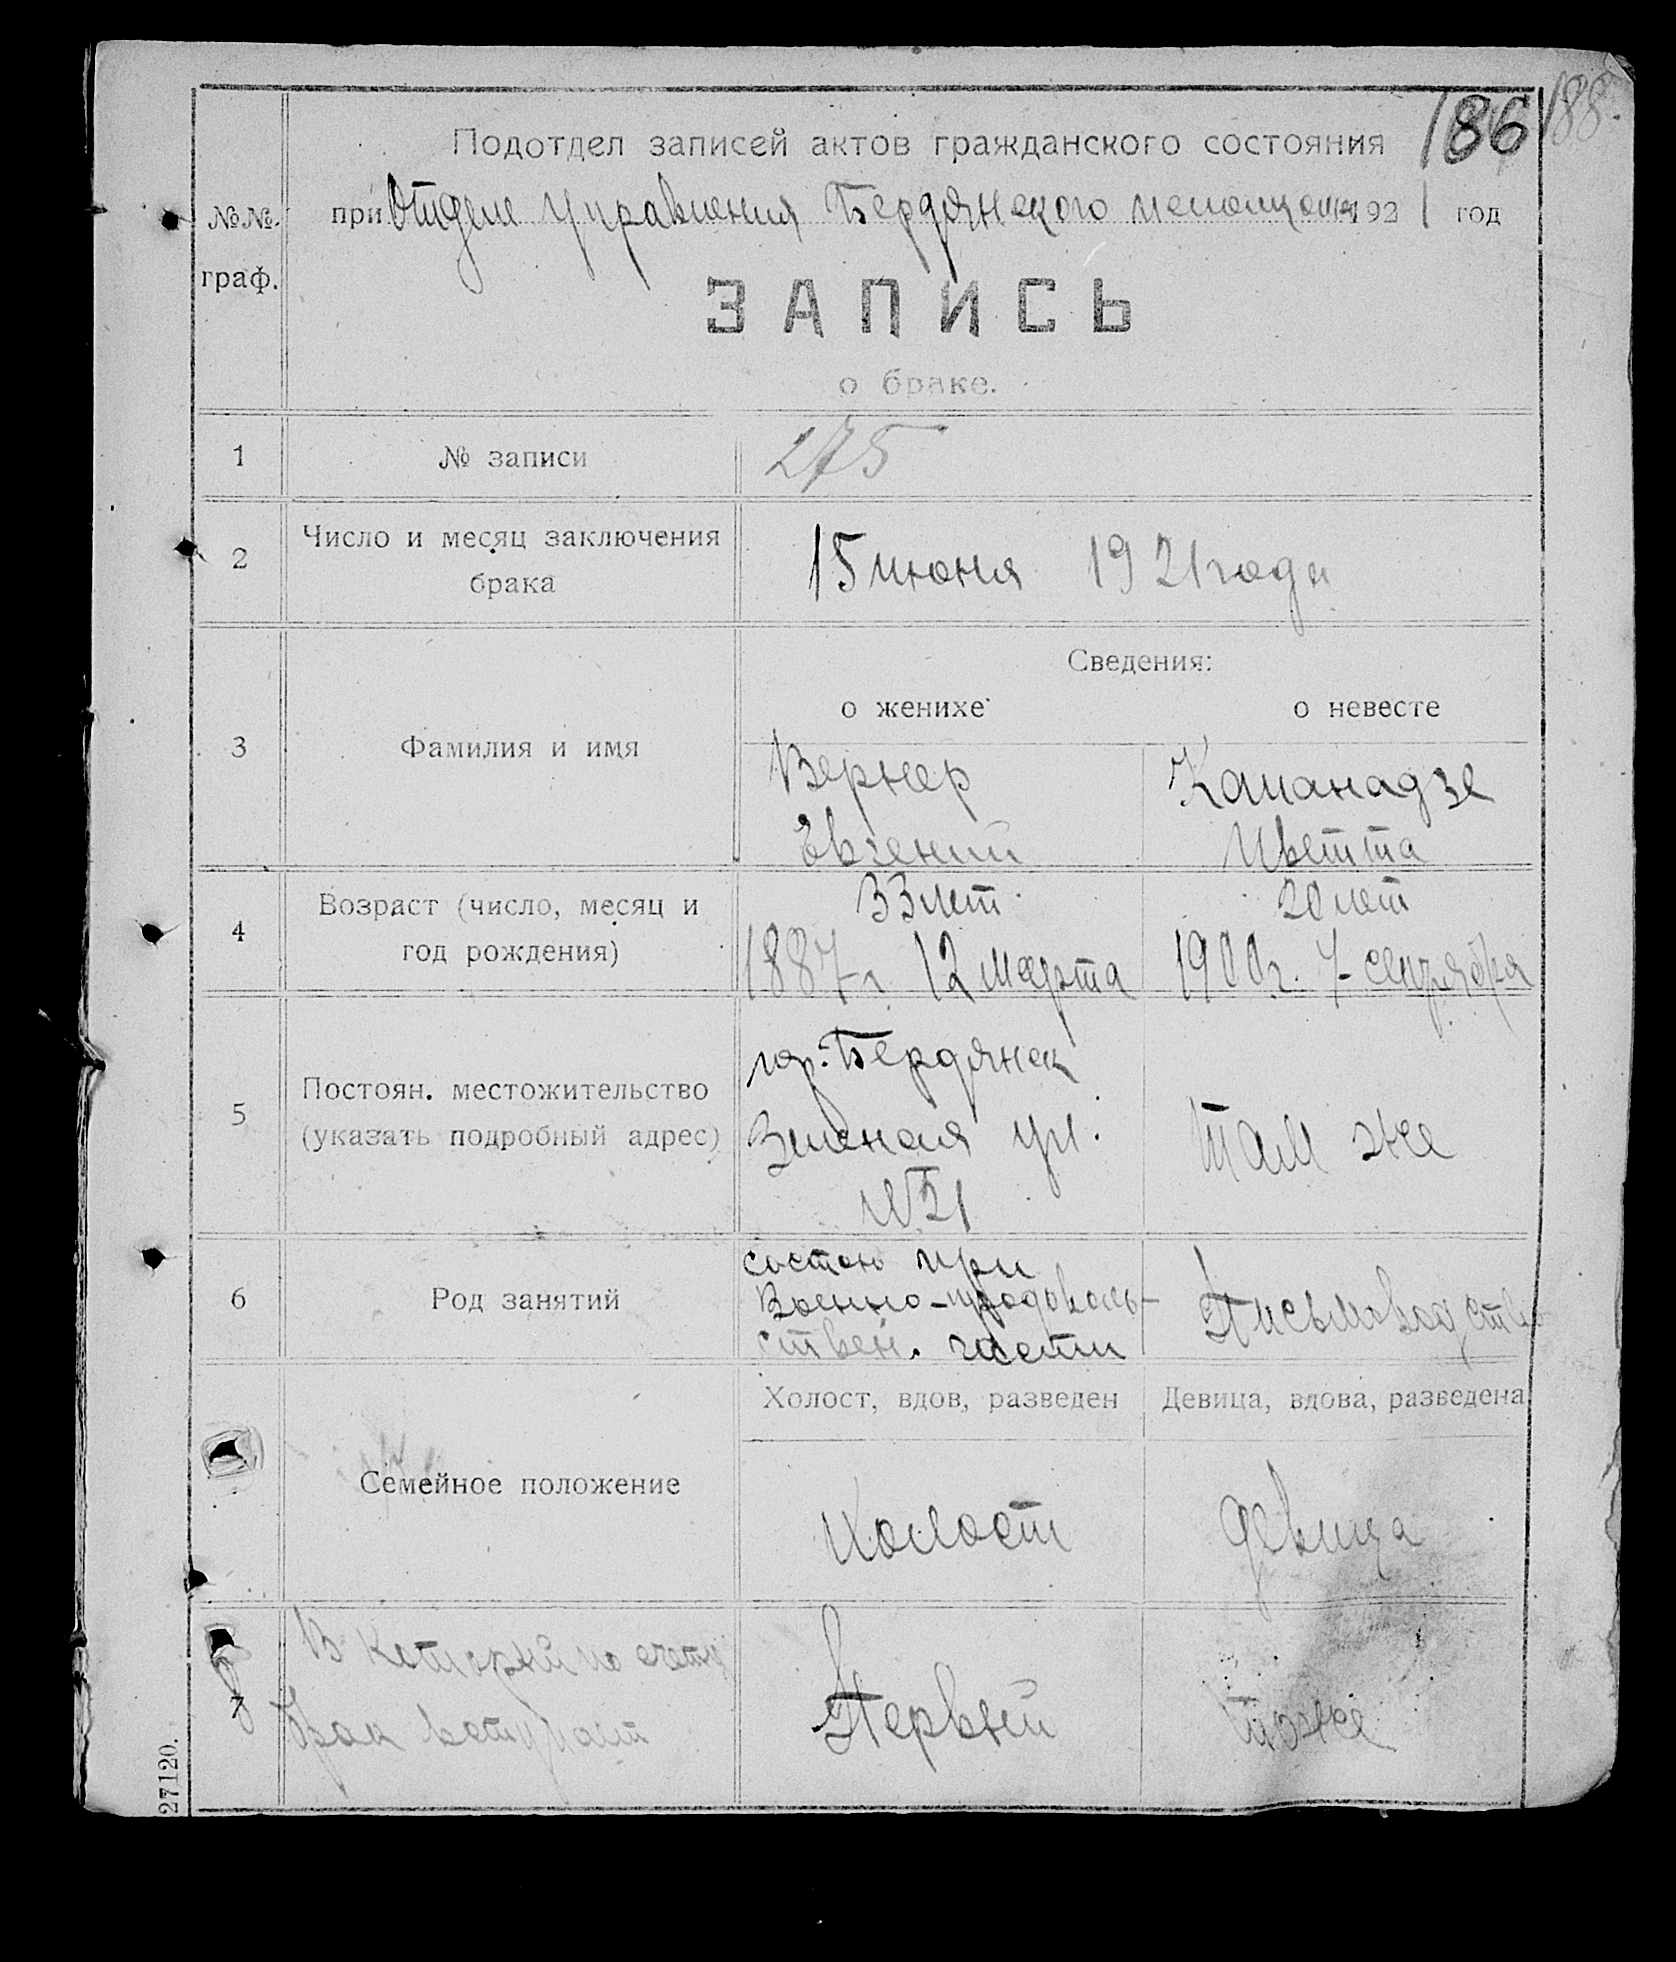 186 188.
Подотдел записей актов гражданского состояния
№№ граф.
при Отделе Управления Бердянского 1921 год
ЗАПИСЬ
о браке.
1 № записи 275
2 Число и месяц заключения
брака
15 июня 1921 года
Сведения:
о женихе о невесте
3 Фамилия и имя
Вернер Каманадзе
Евгений Иветта
4 Возраст (число, месяц и
год рождения)
33 лет 20 лет
1887 г 12 марта 1900 г. 7 сентября
5 Постоян. местожительство
(указать подробный адрес)
гор. Бердянск
Зеленая ул. Там же
№ 21
6 Род занятий
состою при
Военно-продоволь- Письмоводство
ствен. части
Холост, вдов, разведен Девица, вдова, разведена
Семейное положение
Холост девица
7 В который по счету
брак вступают
Первый тоже
27120.